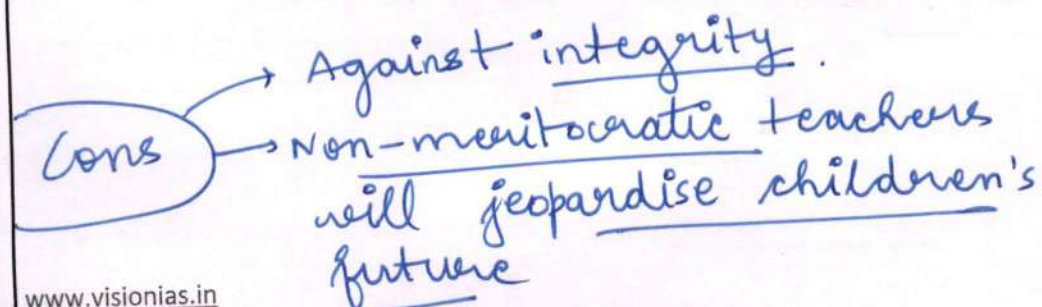 Against integrity.
Cons
Non-meritocratic teachers
will jeopardise children's
future
www.visionias.in